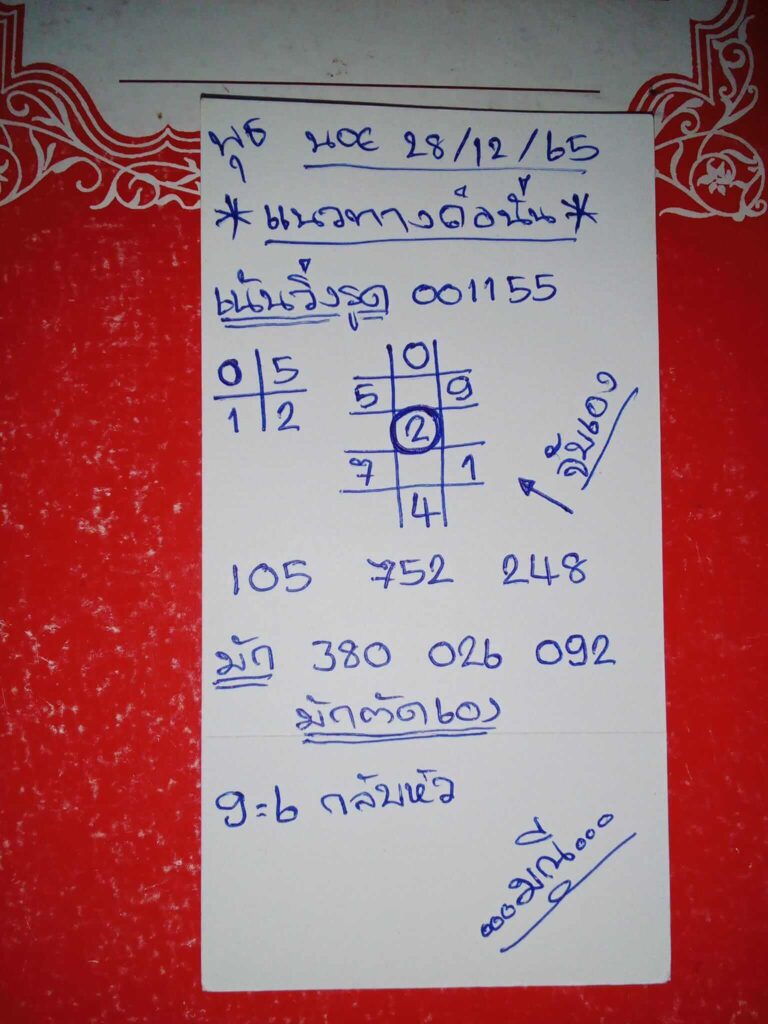 พุธ นอย 28/12/65
*แนวทางดังนี้*
เน้นวิ่งรูด 001155
0 5
1 2
0
5 9
2
7 1
4
จับเอง
105 752 248
มัก 380 026 092
มักตัดเอง
9=6 กลับหัว
...มณี...